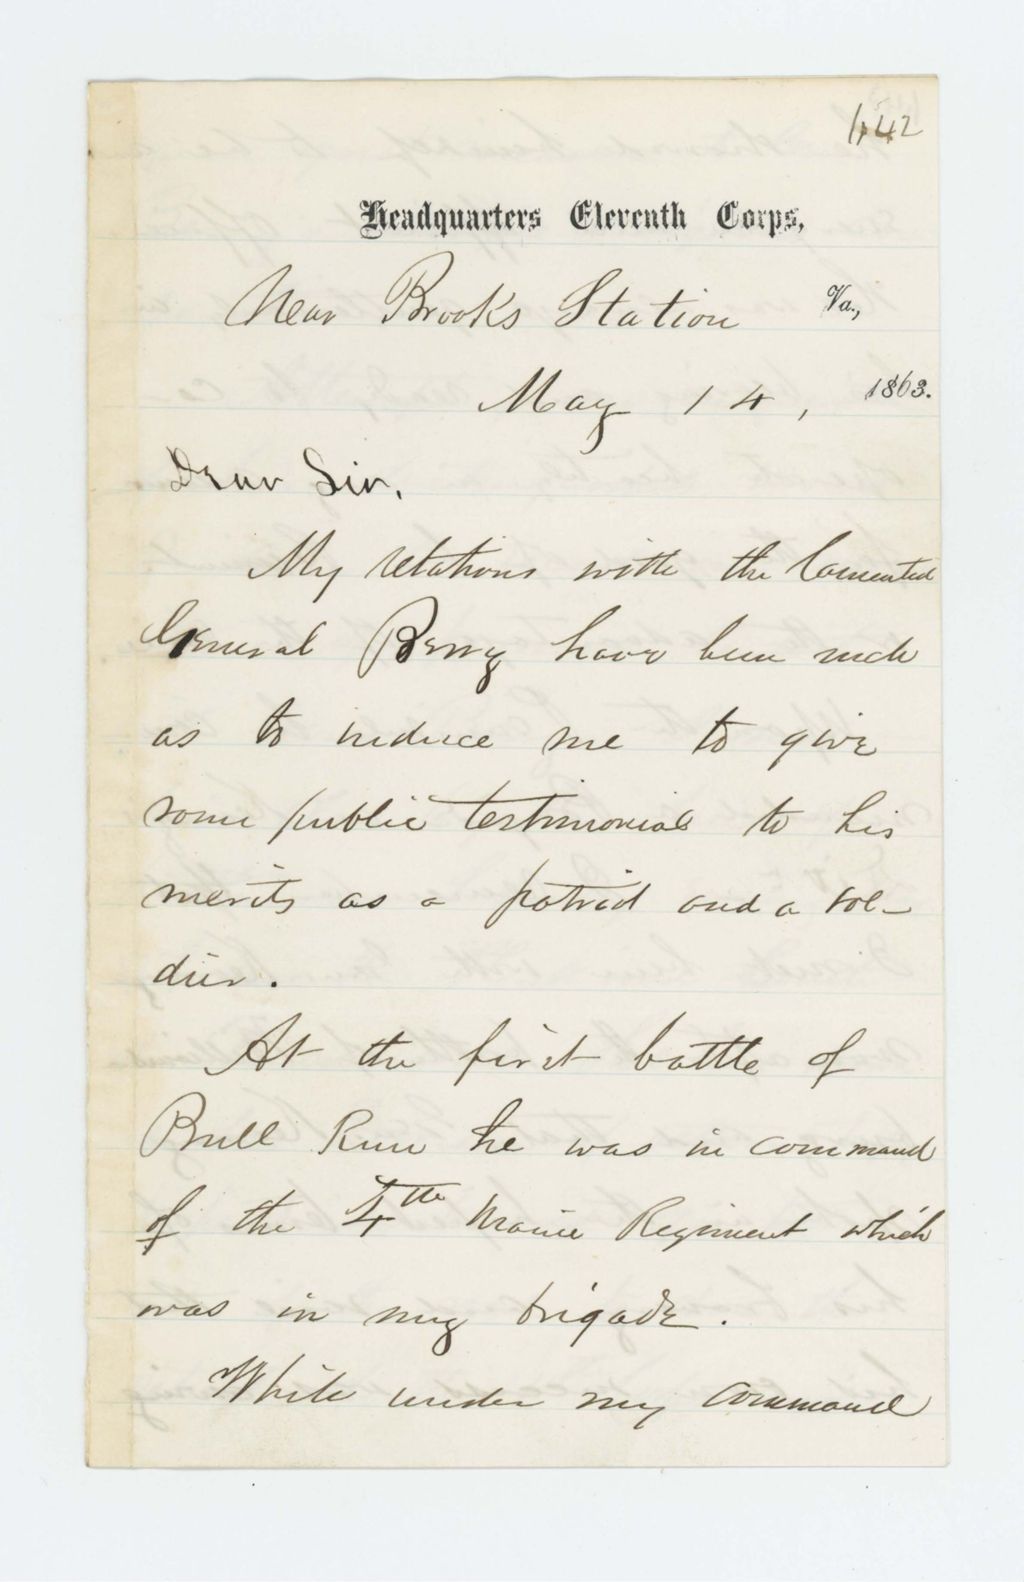 142
Headquarters Eleventh Corps,
Near Brooks Station Va.,
May 14, 1863.
Dear Sir,
My relations with the lamented
General Berry have been such
as to induce me to give
some public testimonial to his
merits as a patriot and a sol-
dier.
At the first battle of
Bull Run he was in command
of the 4th Maine Regiment which
was in my brigade.
While under my command